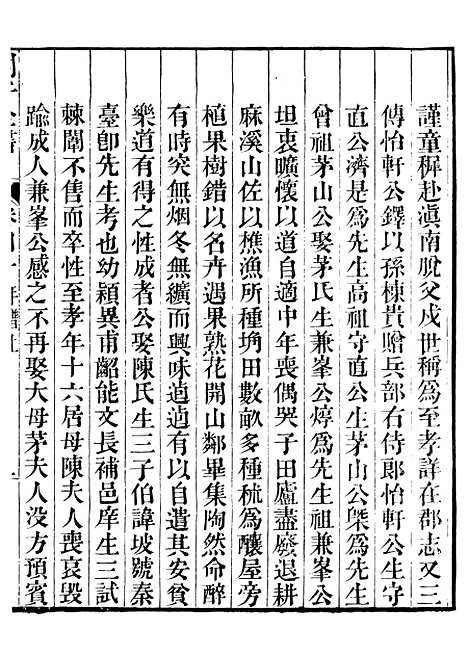 謹童穉赴滇南脫父戍世稱爲至孝詳在郡志又三
傳怡軒公鐸以孫棟貴贈兵部右侍郎怡軒公生守
直公濟是爲先生高祖守直公生茅山公㮣爲先生
曾祖茅山公娶茅氏生兼峯公焞爲先生祖兼峯公
坦衷曠懷以道自適中年喪偶哭子田廬盡廢退耕
麻溪山佐以樵漁所種埆田數畝多種秫爲釀屋旁
植果樹錯以名卉遇果熟花開山鄰畢集陶然命醉
有時突無烟冬無纊而興味逌逌有以自遣其安貧
樂道有得之性成者公娶陳氏生三子伯諱坡號秦
臺卽先生考也幼穎異甫齠能文長補邑庠生三試
棘闈不售而卒性至孝年十六居母陳夫人喪哀毀
踰成人兼峯公感之不再娶大母茅夫人没方預賓